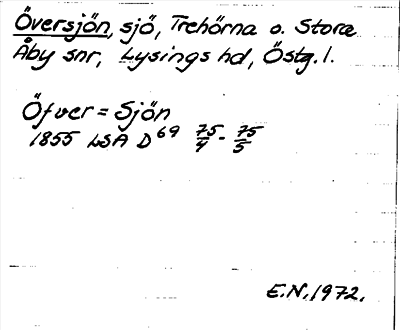 Översjön, sjö, Trehörna o. Stora
Åby snr, Lysings hd, Östg. l.
Öfver = Sjön
1855 LSA D 69 75/4 - 75/5
E.N. 1972.